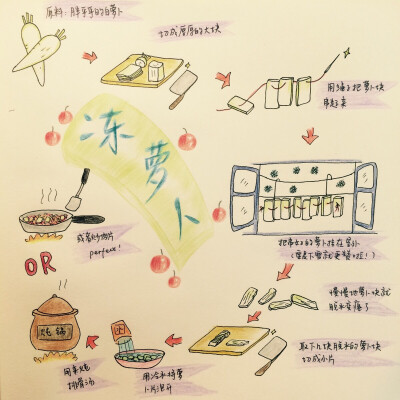 原料：胖乎乎的白萝卜
切成厚厚的大块
用绳子把萝卜块
串起来
把串好的萝卜挂在窗外
（要是下雪就更赞啦！）
慢慢地萝卜块就
脱水变瘪了
取下几块脱水的萝卜块
切成小片
用冷水将萝
卜片泡开
炖锅
用来炖
排骨汤
OR
或者炒肉片
perfect!
冻萝卜